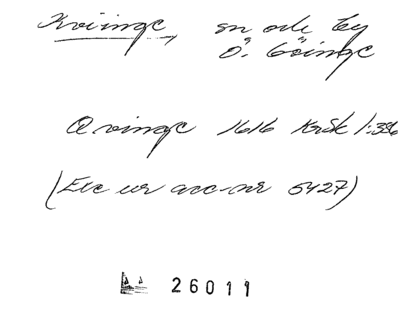 Kvinge, sn och by
Ö. Göinge
Qvinge 1616 KrSk 1:396
(Exc ur acc-nr 5427)
26011